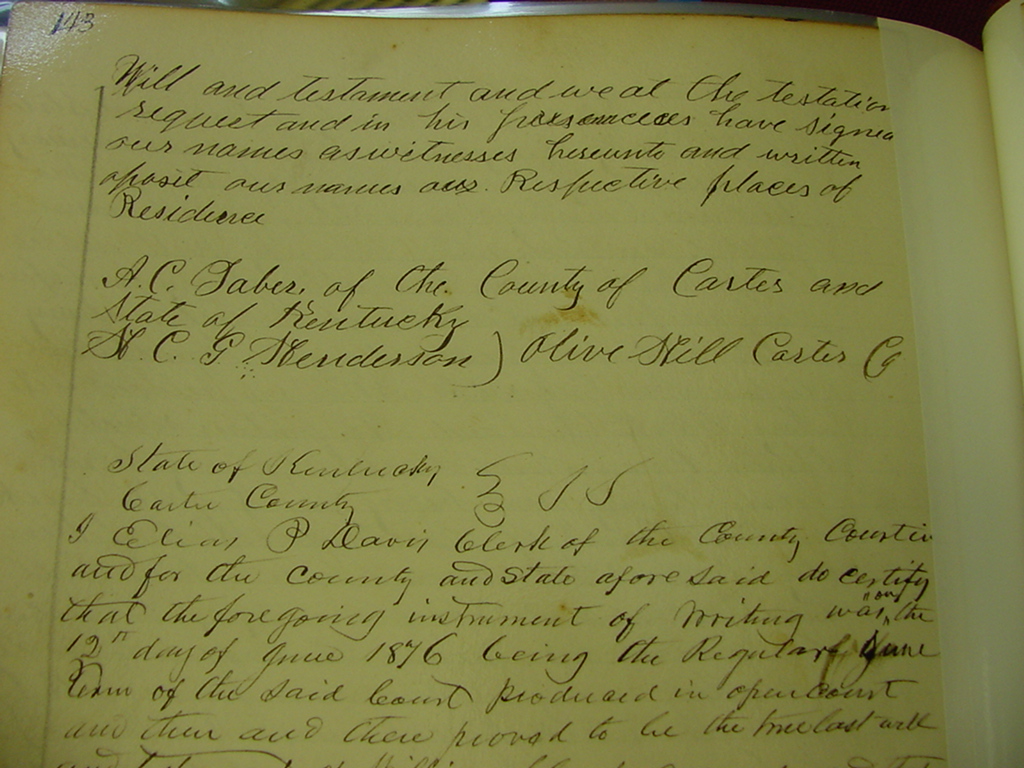 143
Will and testament and we at the testation
request and in his have signed
our names as witnesses hereunto and written
oposit our names our Respective places of
Residence
A. C. Taber, of the County of Carter and
State of Kentucky
H. C. G Henderson ) Olive Hill Carter Co
State of Kentucky
Carter County S S
I Elias P Davis Clerk of the County Court in
and for the County and State afore said do certify
that the foregoing instrument of Writing was on the
12" day of June 1876 being the Regular June
term of the said Court produced in open court
and then and there proved to be the true last will